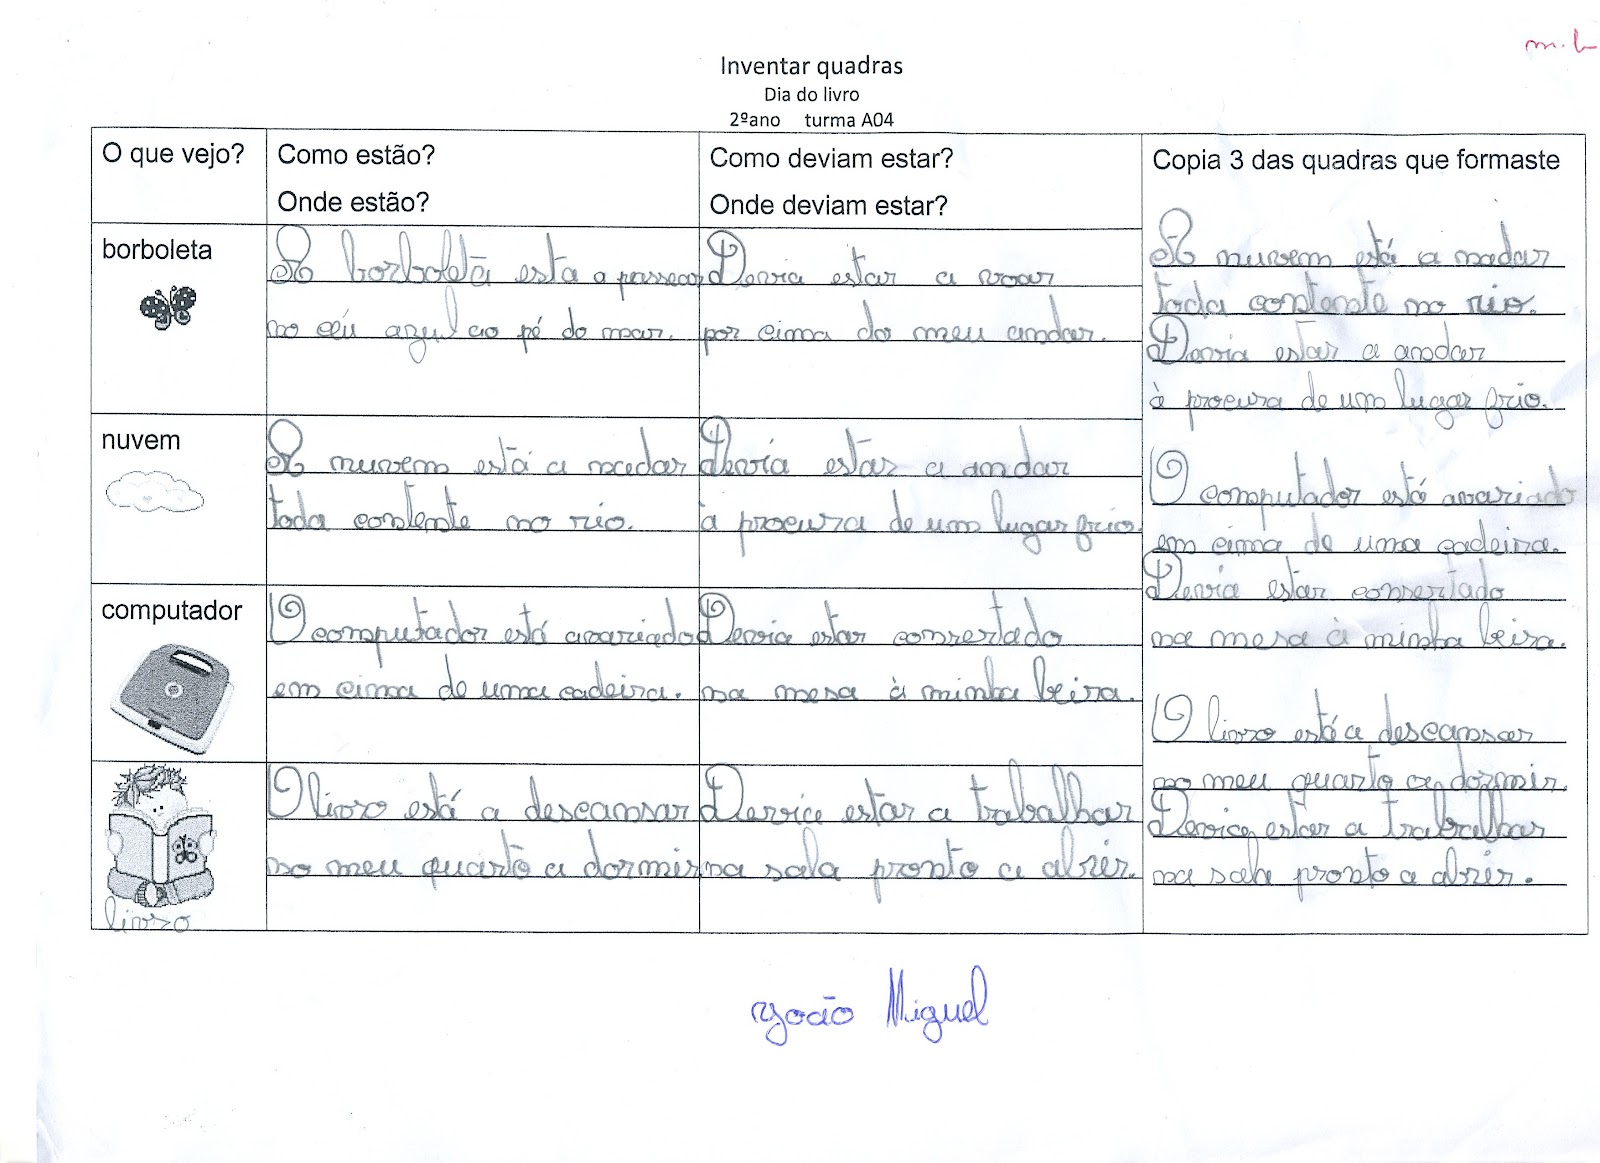 m.b
Inventar quadras
Dia do livro
2ºano turma A04
O que vejo?
Como estão?
Onde estão?
Como deviam estar?
Onde deviam estar?
Copia 3 das quadras que formaste
borboleta
A borboletā esta a passear
no céu azul ao pé do mar.
Devia estar a voar
por cima do meu andar.
nuvem
A nuvem está a nadar
toda contente no rio.
Devia estar a andar
à procura de um lugar frio.
computador
O computador está avariado
em cima de uma cadeira.
Devia estar consertado
na mesa à minha beira.
livro
O livro está a descansar
no meu quarto a dormir
Devia estar a trabalhar
na sala pronto a abrir.
A nuvem está a nadar
toda contente no rio.
Devia estar a andar
à procura de um lugar frio.
O computador está avariado
em cima de uma cadeira.
Devia estar consertado
na mesa à minha beira.
O livro está a descansar
no meu quarto a dormir.
Devia estar a trabalhar
na sala pronto a abrir.
João Miguel